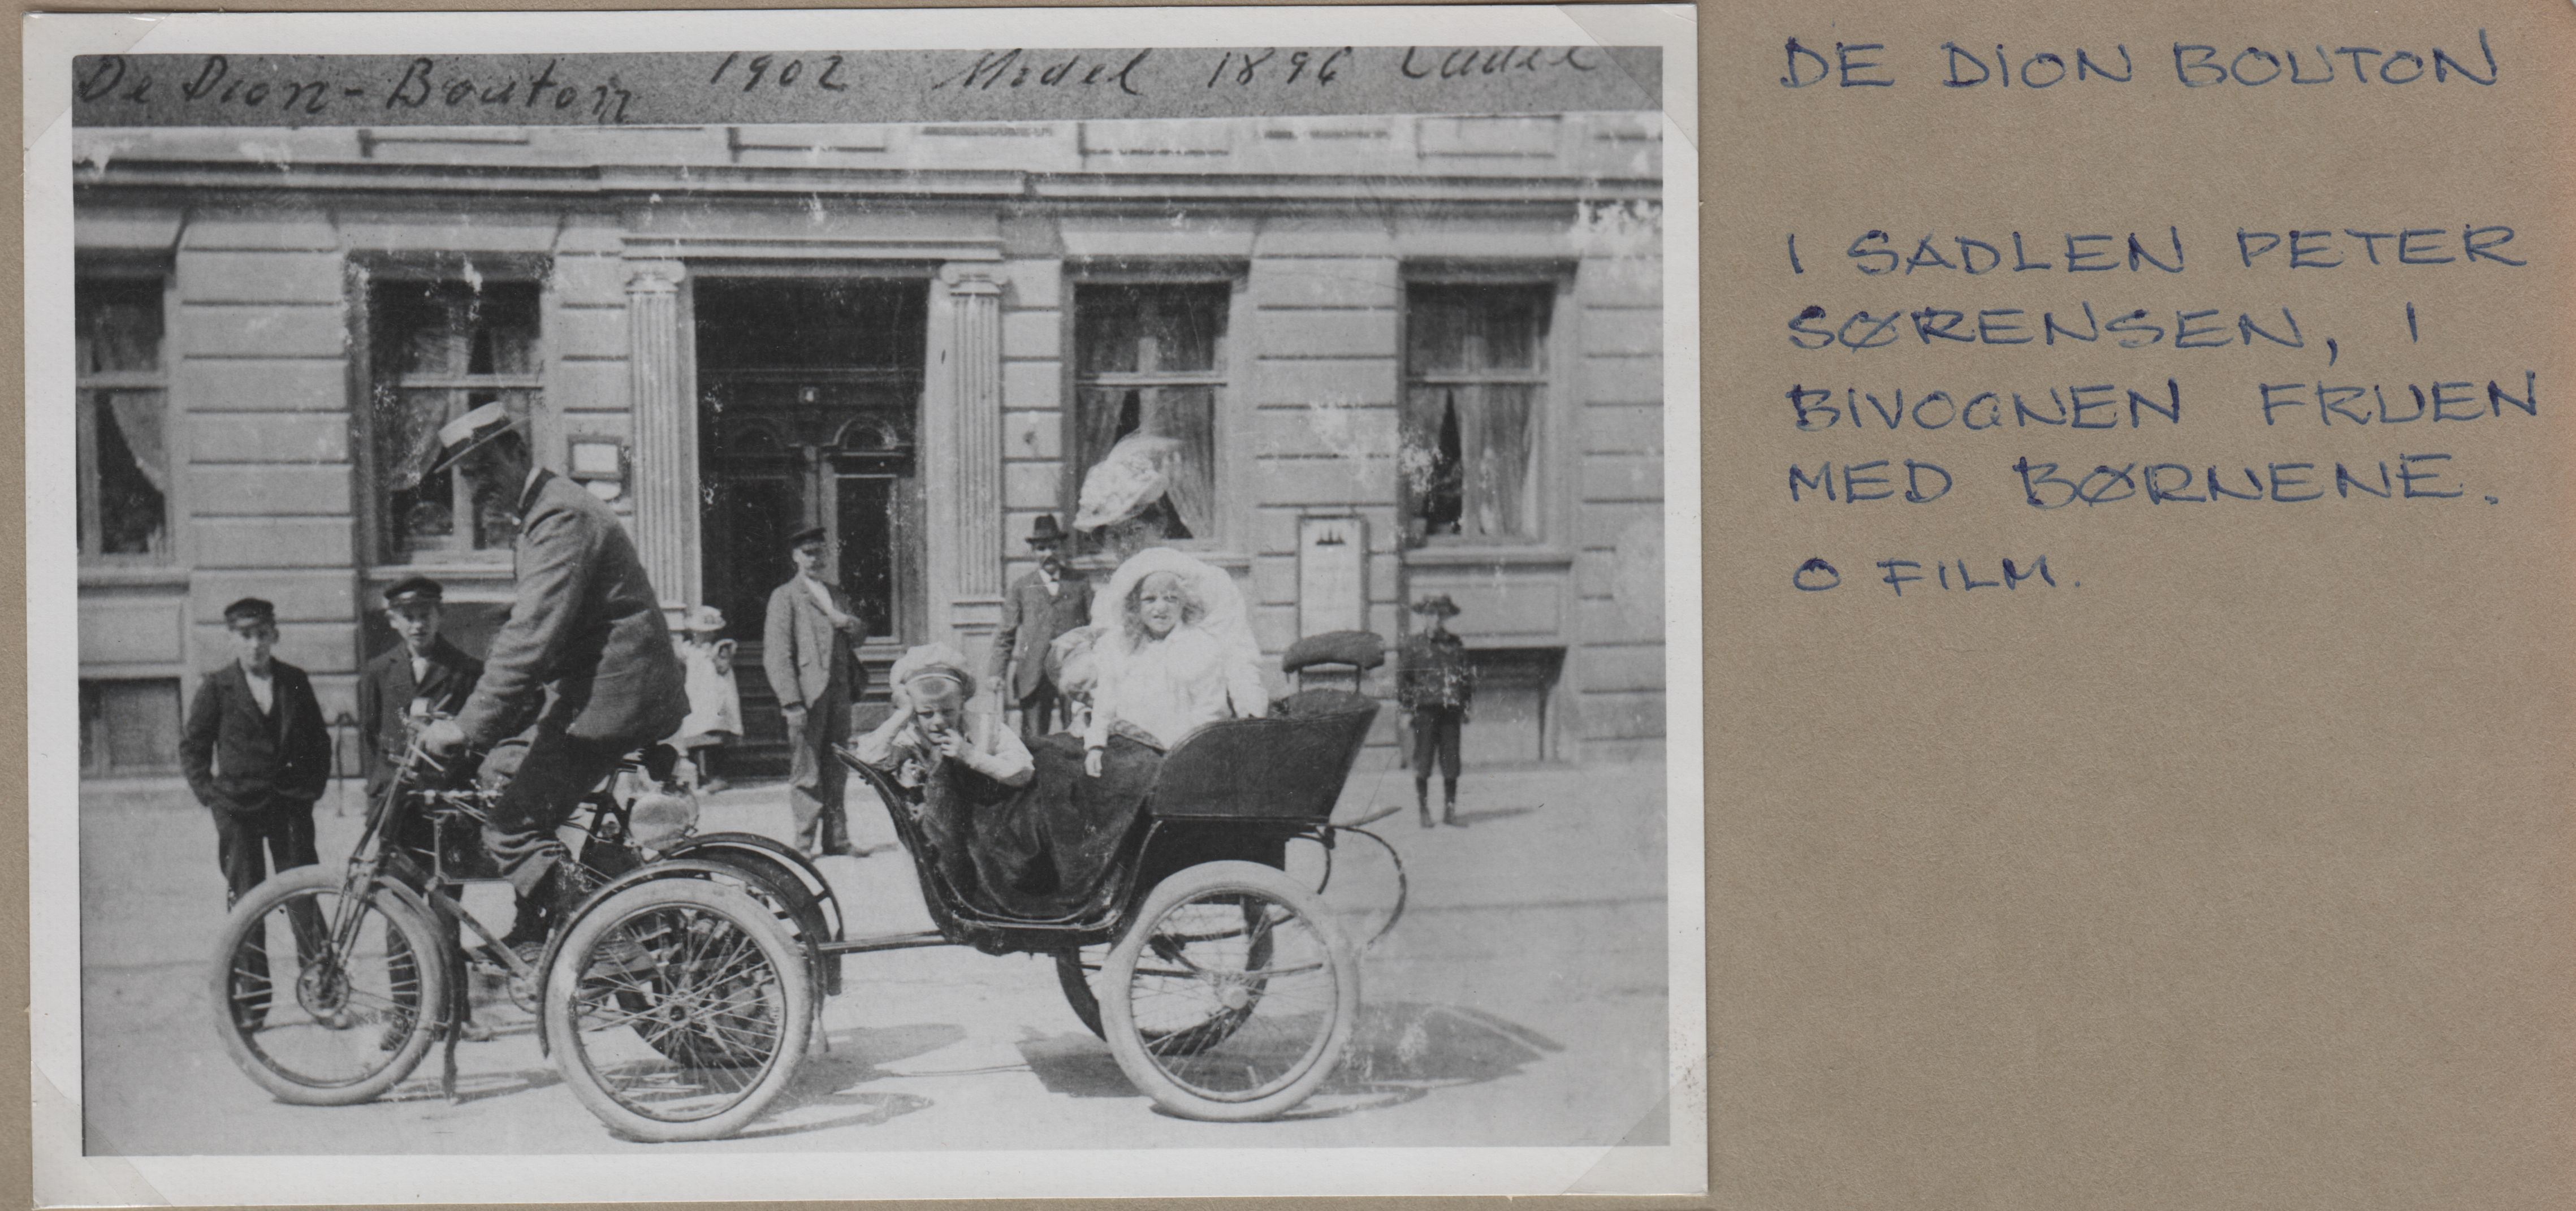 De Dion-Bouton 1902 Model 1896
DE DION BOUTON
I SADLEN PETER
SØRENSEN, I
BIVOGNEN FRUEN
MED BØRNENE.
O FILM.
4